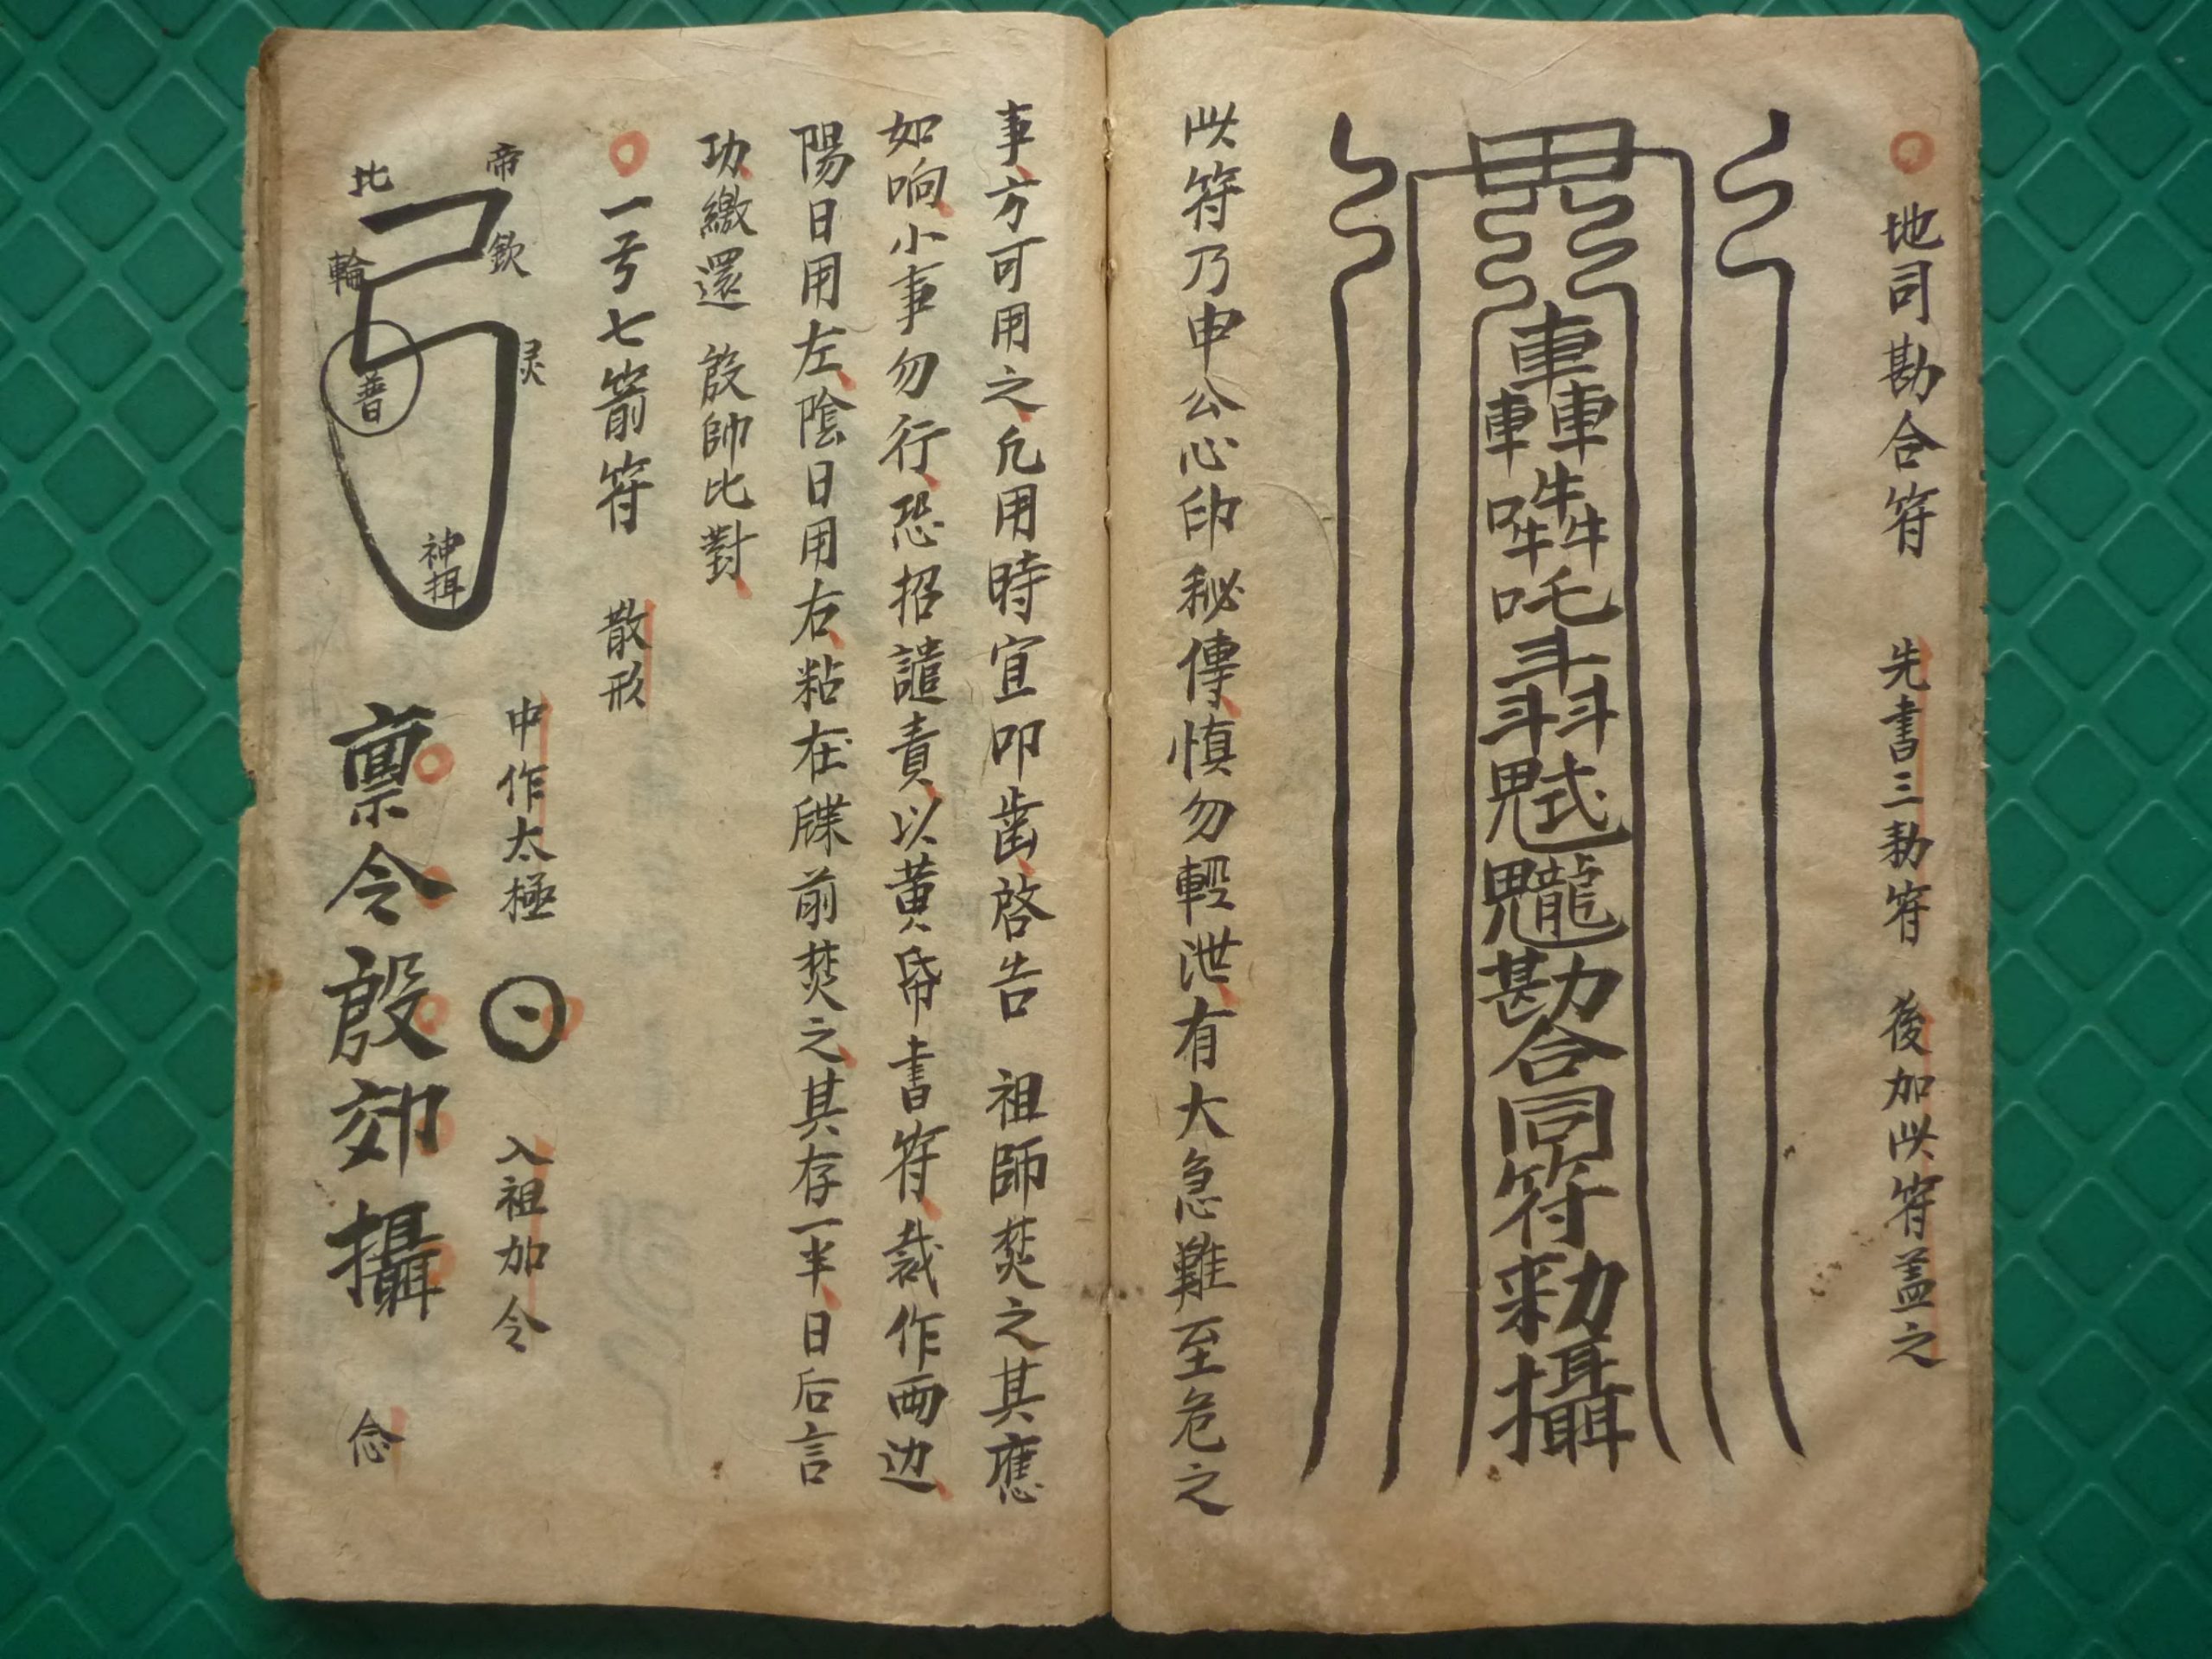 地司勘合符 先書三勅符 後加此符蓋之
轟
吽犇
吒
勘合同符勅攝
此符乃申公心印秘傳慎勿輕泄有大急難至危之
事方可用之凢用時宜叩齒啓告 祖師焚之其應
如响小事勿行恐招譴責以黄帋書符裁作両边
陽日用左陰日用右粘在牒前焚之其存一半日后言
功繳還 殷帥比對
一号七箭符 散形
帝
欽
灵
比
輪
普
神揖
中作太極 入祖加令
禀令殷郊攝 念